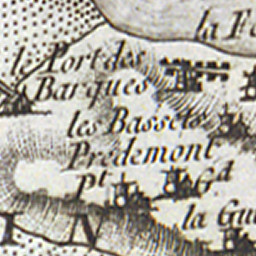 la Fo
le Port des
Barques
les Bassets
Prédemont
Pt Gd
la Gu
I N